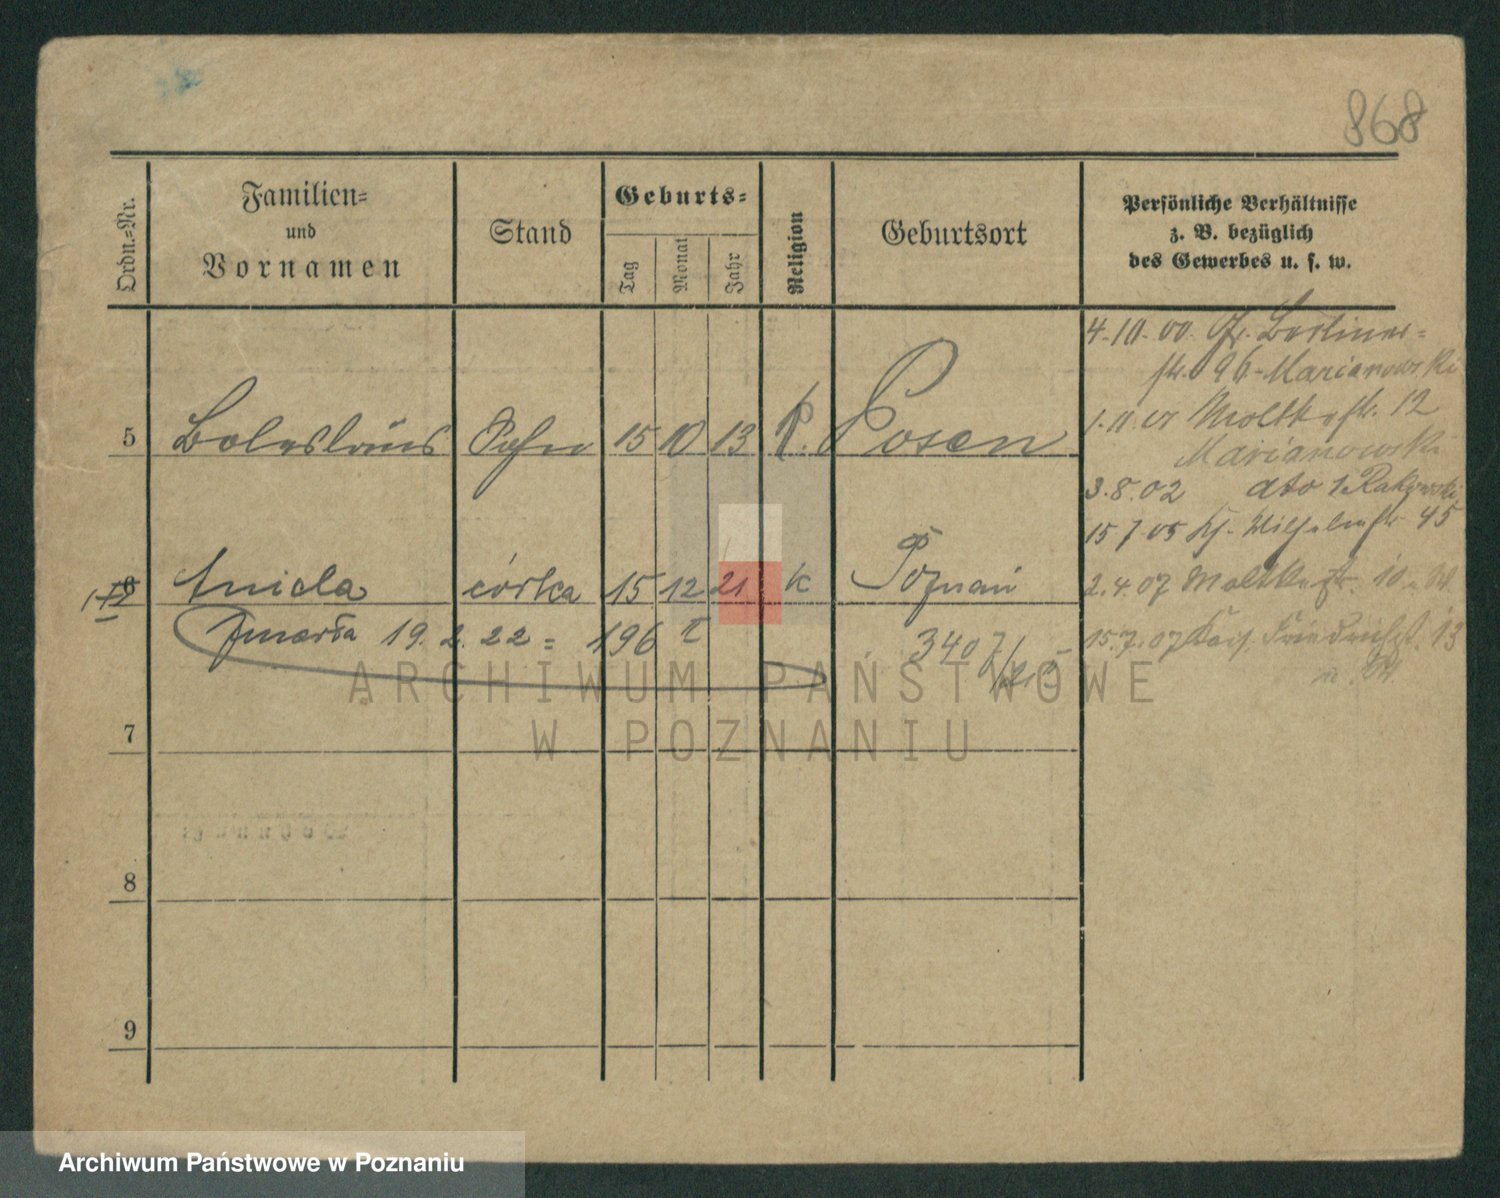 868
Ordn.=Nr.
Familien=
und
Vornamen
Stand
Geburts=
Tag
Monat
Jahr
Religion
Geburtsort
Persönliche Verhältnisse
z. B. bezüglich
des Gewerbes u. s. w.
5 Boleslaus Sohn 15 10 13 K. Posen
6 Aniela córka 15 12 21 k Poznań
Zmarła 19. 2. 22 = 196
3407/
7
8
9
4.10.00. Gr. Berliner=
str. 96 Marianowski
1.11.01 Moltkestr. 12
Marianowski
3.8.02 dto
15.7.05 Wilhelmstr 45
2.4.07 Moltkestr. 10
15.7.07 Friedrichst. 13
ARCHIWUM PAŃSTWOWE
W POZNANIU
Archiwum Państwowe w Poznaniu